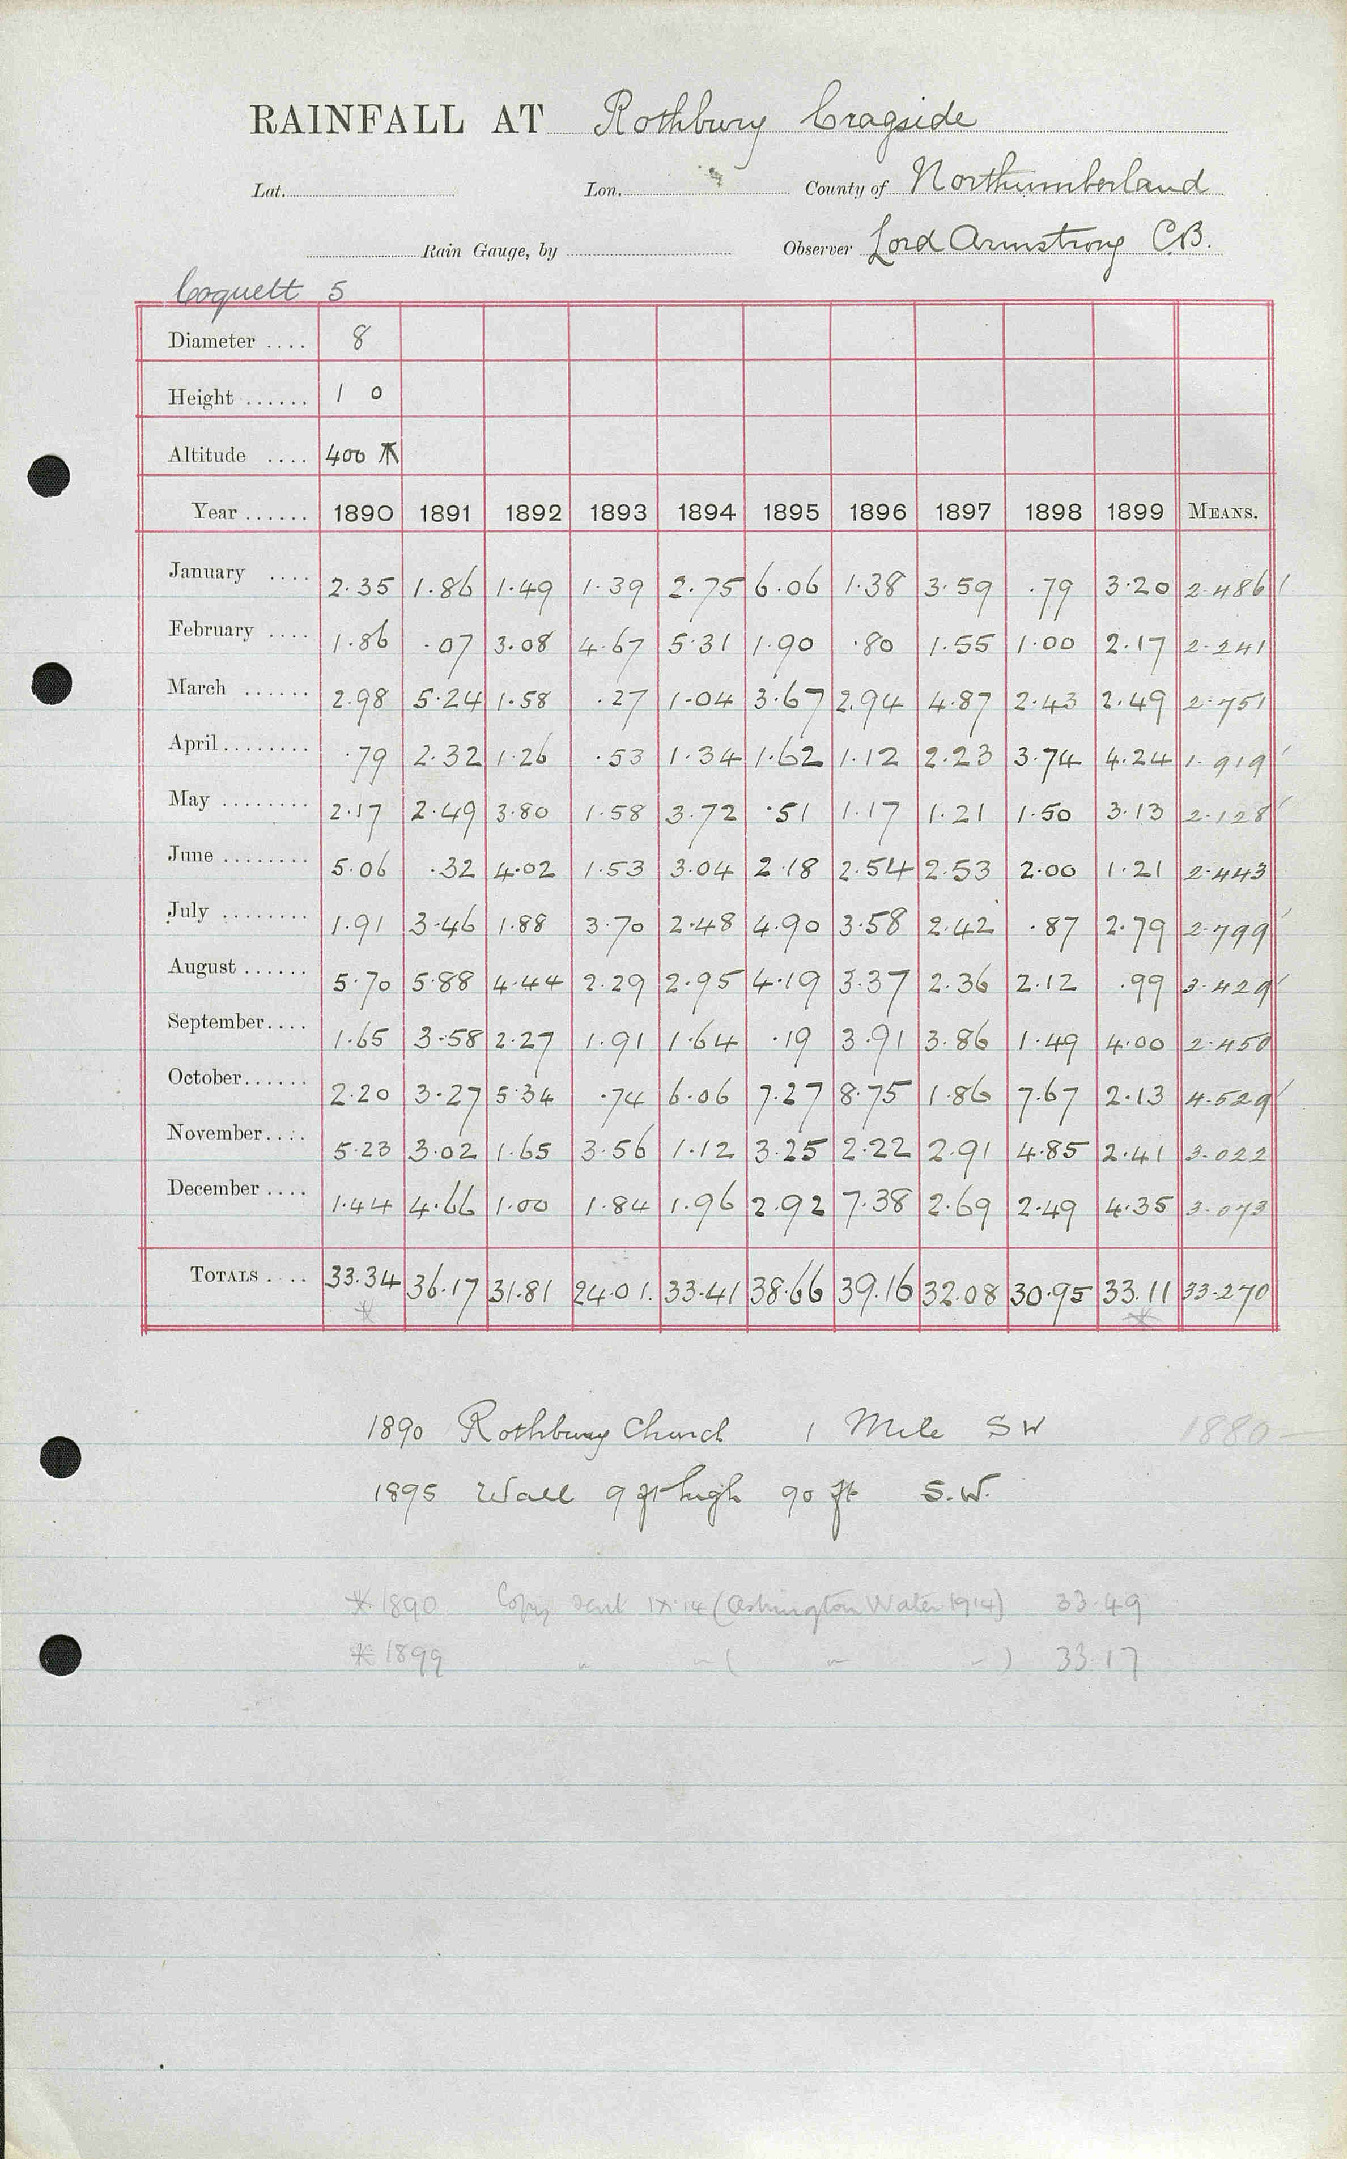 RAINFALL AT Rothbury Cragside
Lat. Lon. County of Northumberland
Rain Gauge, by Observer Lord Armstrong C.B.
Coquett 5
Diameter .... 8
Height ...... 1 0
Altitude .... 400
Year ...... 1890 1891 1892 1893 1894 1895 1896 1897 1898 1899 MEANS.
January .... 2.35 1.86 1.49 1.39 2.75 6.06 1.38 3.59 .79 3.20 2.486
February .... 1.86 .07 3.08 4.67 5.31 1.90 .80 1.55 1.00 2.17 2.241
March ...... 2.98 5.24 1.58 .27 1.04 3.67 2.94 4.87 2.43 2.49 2.751
April ........ .79 2.32 1.26 .53 1.34 1.62 1.12 2.23 3.74 4.24 1.919
May ........ 2.17 2.49 3.80 1.58 3.72 .51 1.17 1.21 1.50 3.13 2.128
June ........ 5.06 .32 4.02 1.53 3.04 2.18 2.54 2.53 2.00 1.21 2.443
July ........ 1.91 3.46 1.88 3.70 2.48 4.90 3.58 2.42 .87 2.79 2.799
August ...... 5.70 5.88 4.44 2.29 2.95 4.19 3.37 2.36 2.12 .99 3.429
September.... 1.65 3.58 2.27 1.91 1.64 .19 3.91 3.86 1.49 4.00 2.450
October...... 2.20 3.27 5.34 .74 6.06 7.27 8.75 1.86 7.67 2.13 4.529
November.... 5.23 3.02 1.65 3.56 1.12 3.25 2.22 2.91 4.85 2.41 3.022
December .... 1.44 4.66 1.00 1.84 1.96 2.92 7.38 2.69 2.49 4.35 3.073
TOTALS .... 33.34 36.17 31.81 24.01. 33.41 38.66 39.16 32.08 30.95 33.11 33.270
* *
1890 Rothbury Church 1 Mile SW 1880 —
1895 Wall 9 ft high 90 ft S.W.
* 1890 Copy sent (Ashington Water 1914) 33.49
* 1899 " " ( " " ) 33.17